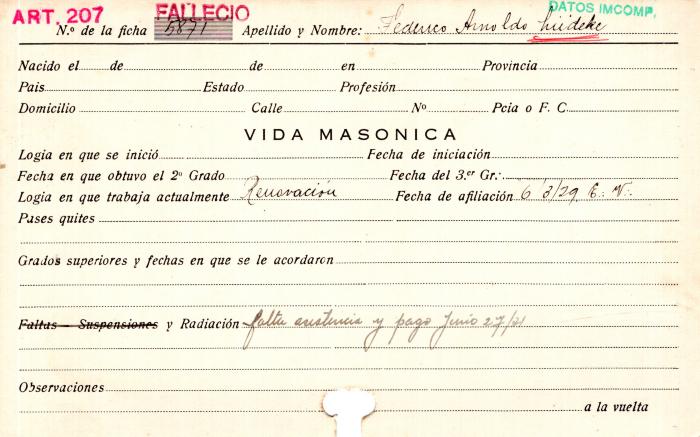 ART. 207 FALLECIO DATOS IMCOMP.
N.o de la ficha 5871 Apellido y Nombre: Federico Arnoldo Lüdeke
Nacido el de de en Provincia
Pais Estado Profesión
Domicilio Calle No Pcia o F. C.
VIDA MASONICA
Logia en que se inició Fecha de iniciación
Fecha en que obtuvo el 2o Grado Fecha del 3.er Gr:
Logia en que trabaja actualmente Renovación Fecha de afiliación 6/3/29 E. V.
Pases quites
Grados superiores y fechas en que se le acordaron
Faltas - Suspensiones y Radiación falta asistencia y pago Junio 27/31
Observaciones
a la vuelta